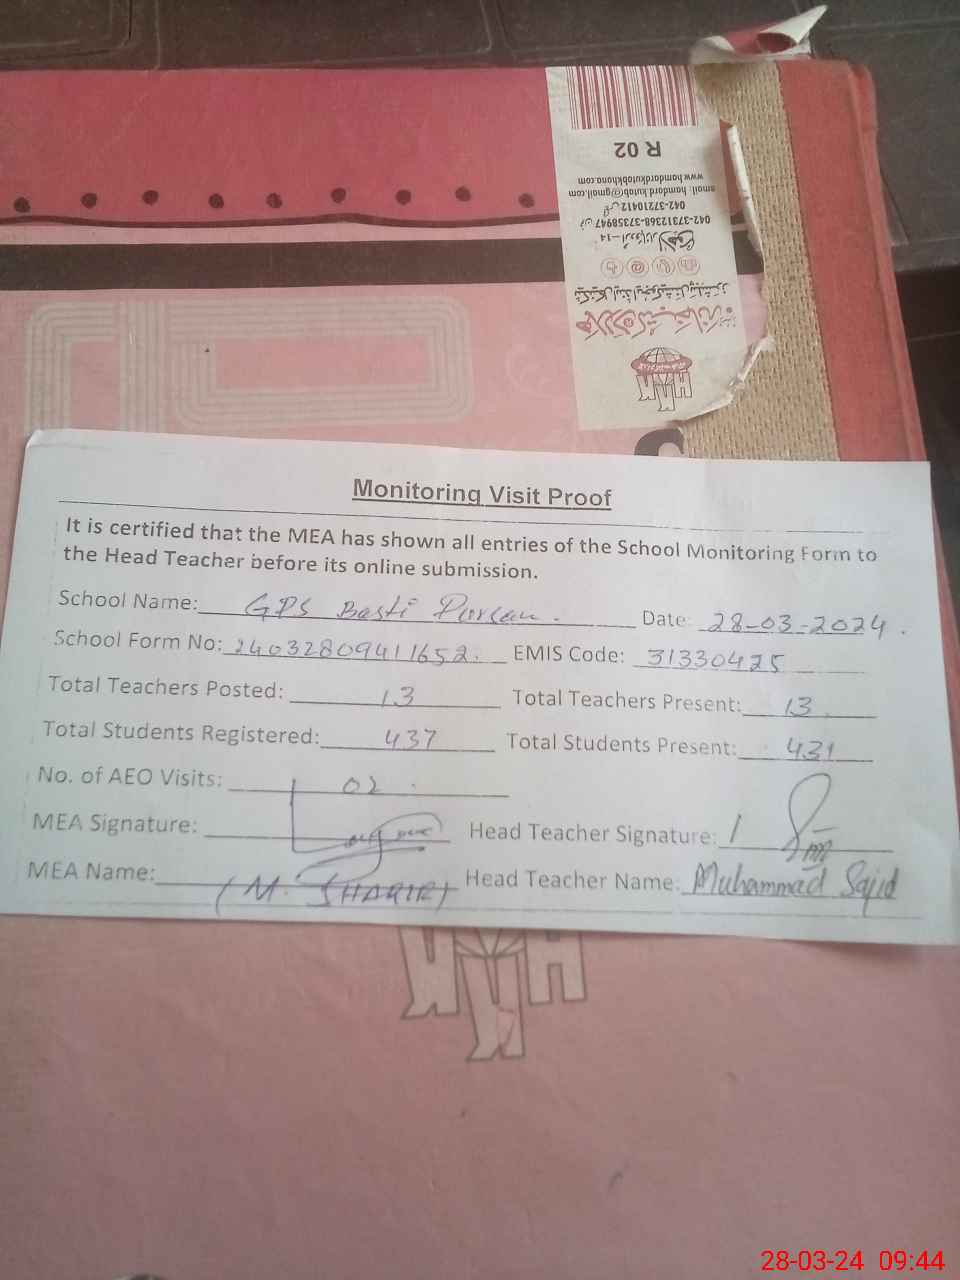 R 02
www.hamdardkutabkhana.com
email: hamdard.kutab@gmail.com
042-37210412
042-37312368-37358947
Monitoring Visit Proof
It is certified that the MEA has shown all entries of the School Monitoring Form to
the Head Teacher before its online submission.
School Name: GPS Basti Pursan. Date: 28-03-2024.
School Form No: 24032809411652. EMIS Code: 31330425
Total Teachers Posted: 13 Total Teachers Present: 13
Total Students Registered: 437 Total Students Present: 431
No. of AEO Visits: 02
MEA Signature: Head Teacher Signature:
MEA Name: (M. Head Teacher Name: Muhammad Sajid
28-03-24 09:44